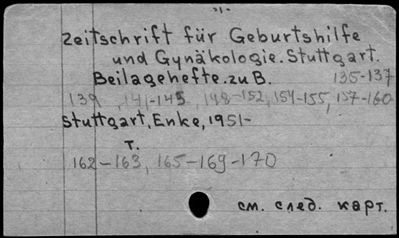 -1-
Zeitschrift für Geburtshilfe
und Gynäkologie. Stuttgart.
Beilagehefte. zu B. 135-137
139, 141-145, 148-152, 154-155, 157-160
Stuttgart, Enke, 1951-
T.
162-163, 165-169-170
см. след. карт.